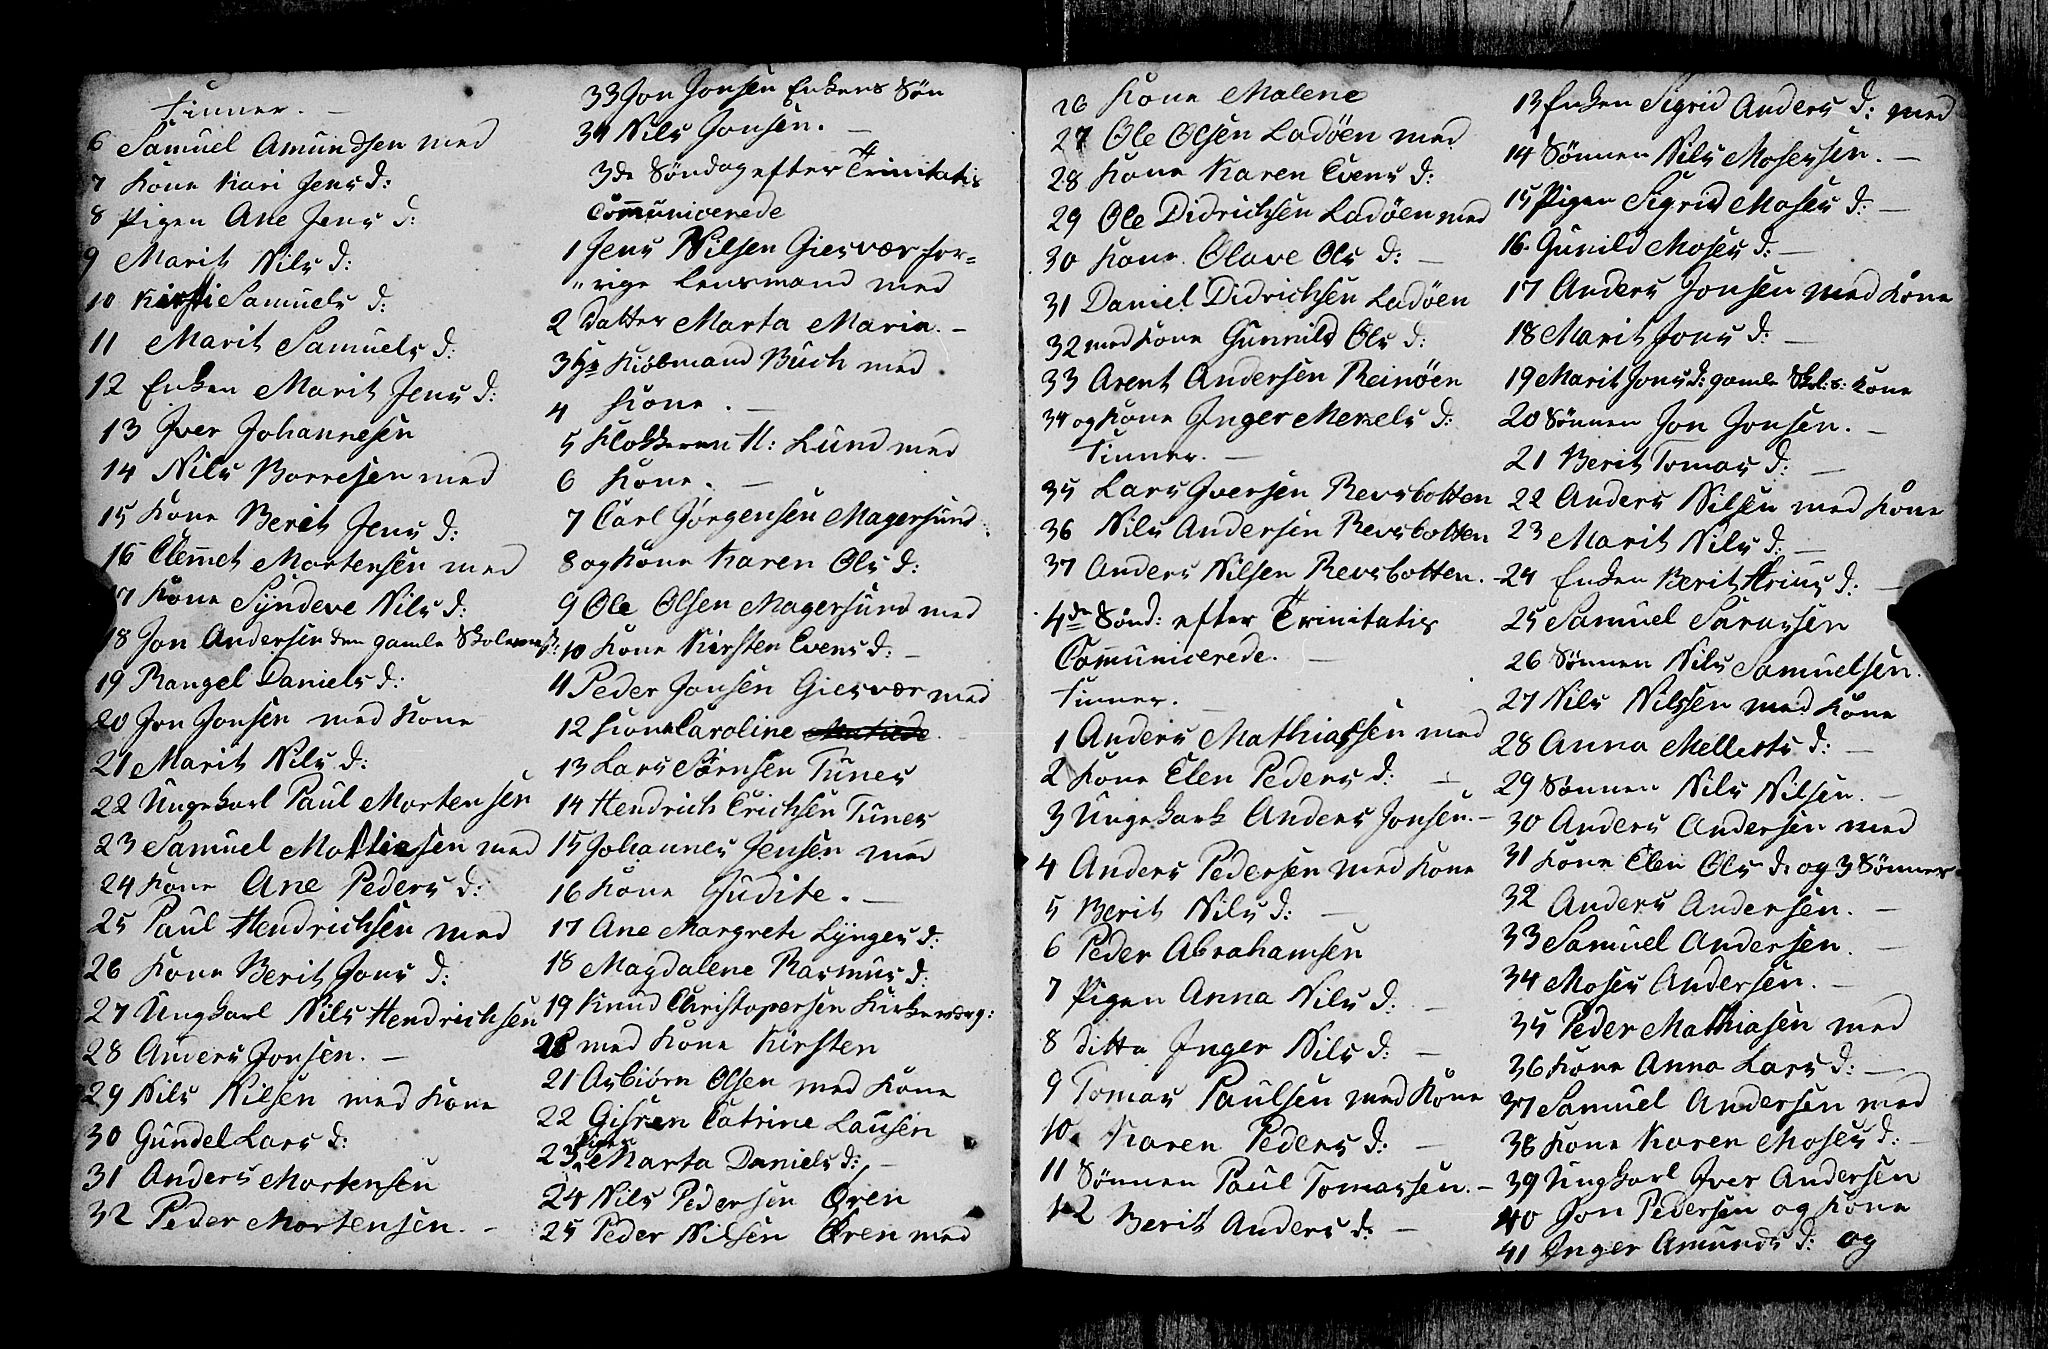 Finner. —
6 Samuel Amundsen med
7 Kone Kari Jens d:
8 Pigen Ane Jens d:
9 Marit Nils d:
10 Kirsti Samuels d:
11 Marit Samuels d:
12 Enken Marit Jens d:
13 Iver Johannesen
14 Nils Borresen med
15 Kone Berit Jens d:
16 Clemet Mortensen med
17 Kone Syndeve Nils d:
18 Jon Andersen den gamle Skolemest:
19 Rangel Daniels d:
20 Jon Jonsen med Kone
21 Marit Nils d:
22 Ungekarl Paul Mortensen
23 Samuel Mathiesen med
24 Kone Ane Peders d:
25 Paul Hendrichsen med
26 Kone Berit Jons d:
27 Ungkarl Nils Hendrichsen
28 Anders Jonsen. —
29 Nils Nilsen med Kone
30 Gundel Lars d:
31 Anders Mortensen
32 Peder Mortensen. —
33 Jon Jonsen Enkens Søn
34 Nils Jonsen. —
3de Søndag efter Trinitatis
Communicerede
1 Jens Nilsen Giesvær for=
"rige Lensmand med
2 Datter Marta Maria. —
3 Hr Kiøbmand Buch med
4 Kone. —
5 Klokkeren H: Lund med
6 Kone. —
7 Carl Jørgensen Magersund
8 og Kone Karen Ols d:
9 Ole Olsen Magersund med
10 Kone Kirsten Evens d: —
11 Peder Jonsen Giesvær med
12 Kone Caroline Matilde.
13 Lars Sørnsen Tunes
14 Hendrich Erichsen Tunes
15 Johannes Jensen med
16 Kone Judite. —
17 Ane Margrete Lynges d:
18 Magdalene Rasmus d:
19 Knud Christopersen Kirkeværg:
20 med Kone Kirsten
21 Asbiørn Olsen med Kone
22 Gisken Catrine Lausen
23 Pigen Marta Daniels d: —
24 Nils Pedersen Øren
25 Peder Nilsen Øren med
26 Kone Malene
27 Ole Olsen Ladøen med
28 Kone Karen Evens d:
29 Ole Didrichsen Ladøen med
30 Kone Olave Ols d: —
31 Daniel Didrichsen Ladøen
32 med Kone Gunnild Ols d:
33 Arent Andersen Reinøen
34 og Kone Inger Mekels d:
Finner. —
35 Lars Iversen Revsbotten
36 Nils Andersen Revsbotten
37 Anders Nilsen Revsbotten. —
4de Sønd: efter Trinitatis
Communicerede. —
Finner. —
1 Anders Mathiassen med
2 Kone Elen Peders d: —
3 Ungekark Anders Jonsen. —
4 Anders Pedersen med Kone
5 Berit Nils d: —
6 Peder Abrahamsen
7 Pigen Anna Nils d: —
8 ditto Inger Nils d: —
9 Tomas Paulsen med Kone
10. Karen Peders d: —
11 Sønnen Paul Tomassen. —
12 Berit Anders d: —
13 Enken Sigrid Anders d: med
14 Sønnen Nils Mosessen. —
15 Pigen Sigrid Moses d: —
16. Gunild Moses d: —
17 Anders Jonsen med Kone
18 Marit Jons d: —
19 Marit Jons d: gamle Skol:s: Kone
20 Sønnen Jon Jonsen. —
21 Berit Tomas d: —
22 Anders Nilsen med Kone
23 Marit Nils d: —
24 Enken Berit d: —
25 Samuel Sarassen
26 Sønnen Nils Samuelsen.
27 Nils Nilssen med Kone
28 Anna Mellets d: —
29 Sønnen Nils Nilsen. —
30 Anders Andersen med
31 Kone Elen Ols d: og 3 Sønner
32 Anders Andersen. —
33 Samuel Andersen. —
34 Moses Andersen. —
35 Peder Mathiasen med
36 Kone Anna Lars d: —
37 Samuel Andersen med
38 Kone Karen Moses d: —
39 Ungkarl Iver Andersen
40 Jon Pedersen og Kone
41 Inger Amunds d: og